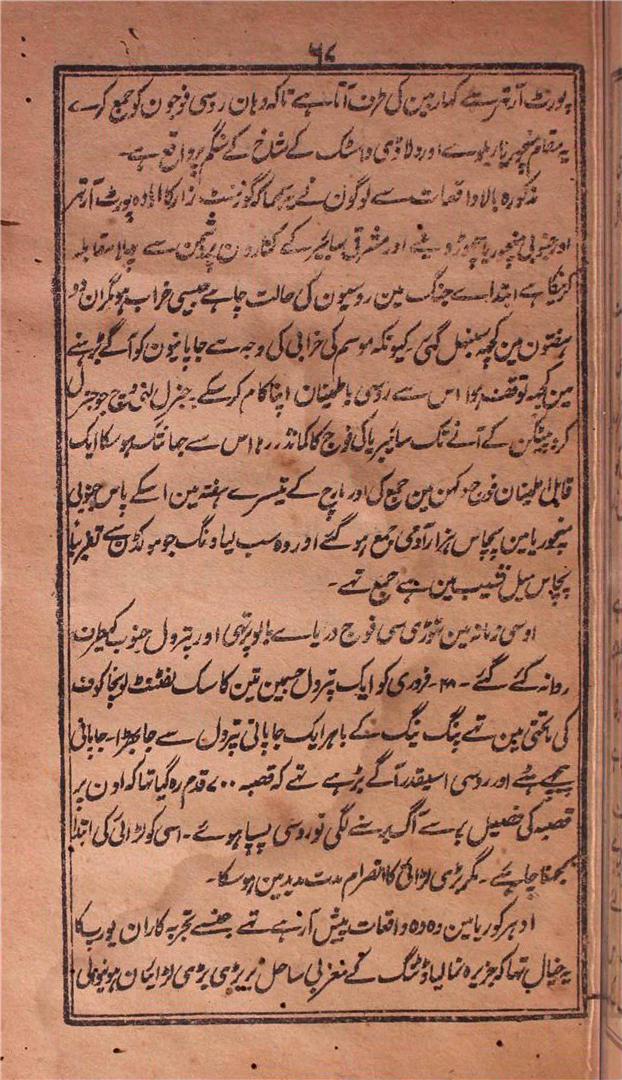 ۶۸
پورٹ آرتھر سے کھاربین کی طرف آتا ہے تاکہ وہان روسی فوجون کو جمع کرے
یہ مقام منچورین ریلوے اور ولاڈی واسٹک کے شاخ کے سنگم پر واقع ہے۔
مذکورہ بالا واقعات سے لوگون نے یہ سمجھا کہ گورنمنٹ زار کا ارادہ پورٹ آرتھر
اور جنوبی منچوریا چھوڑ دینے اور مشرقی سائبیریا کے کنارون پر دشمن سے پہلا مقابلہ
کرنیکا ہے ابتداے جنگ مین روسیون کی حالت چاہے جیسی خراب ہو مگر ان دو
ہفتون مین کچھ سنبھل گئی۔ کیونکہ موسم کی خرابی کی وجہ سے جاپانیون کو آگے بڑہنے
مین کچھ توقف ہوا اس سے روسی باطمینان اپنا کام کرسکے۔ جنرل لنی وچ جو جنرل
کروپیٹکن کے آنے تک سائبیریا کی فوج کا کمانڈر رہا اس سے جہانتک ہوسکا ایک
قابل اطمینان فوج موکدن مین جمع کی اور مارچ کے تیسرے ہفتہ مین اسکے پاس جنوبی
منچوریا مین پچاس ہزار آدمی جمع ہو گئے اور وہ سب لیاونگ جو موکڈن سے تقریباً
پچاس میل نشیب مین ہے جمع تھے۔
اوسی زمانہ مین تھوڑی سی فوج دریاے یالو پر تھی اور پترول جنوب کیطرف
روانہ کئے گئے۔ ۲۸۔ فروری کو ایک پترول جسمین تین کاسک لفٹنٹ لونچاکوف
کی ماتحتی مین تھے پنگ ینگ کے باہر ایک جاپانی پترول سے جا بھڑا۔ جاپانی
پیچھے ہٹے اور روسی اسیقدر آگے بڑہے تھے کہ قصبہ ۷۰۰ قدم رہ گیا تھا کہ اون پر
قصبہ کی فصیل پر سے آگ برسنے لگی تو روسی پسپا ہوئے۔ اسی کو لڑائی کی ابتدا
سمجھنا چاہئے۔ مگر بڑی لڑائی کا انصرام مدت مدید مین ہوسکا۔
اودہر کوریا مین وہ وہ واقعات پیش آرہے تھے جنسے تجربہ کاران یورپ کا
یہ خیال تھا کہ جزیرہ نما لیاوٹنگ کے مغربی ساحل پر بڑی بڑی لڑائیان ہونیوالی